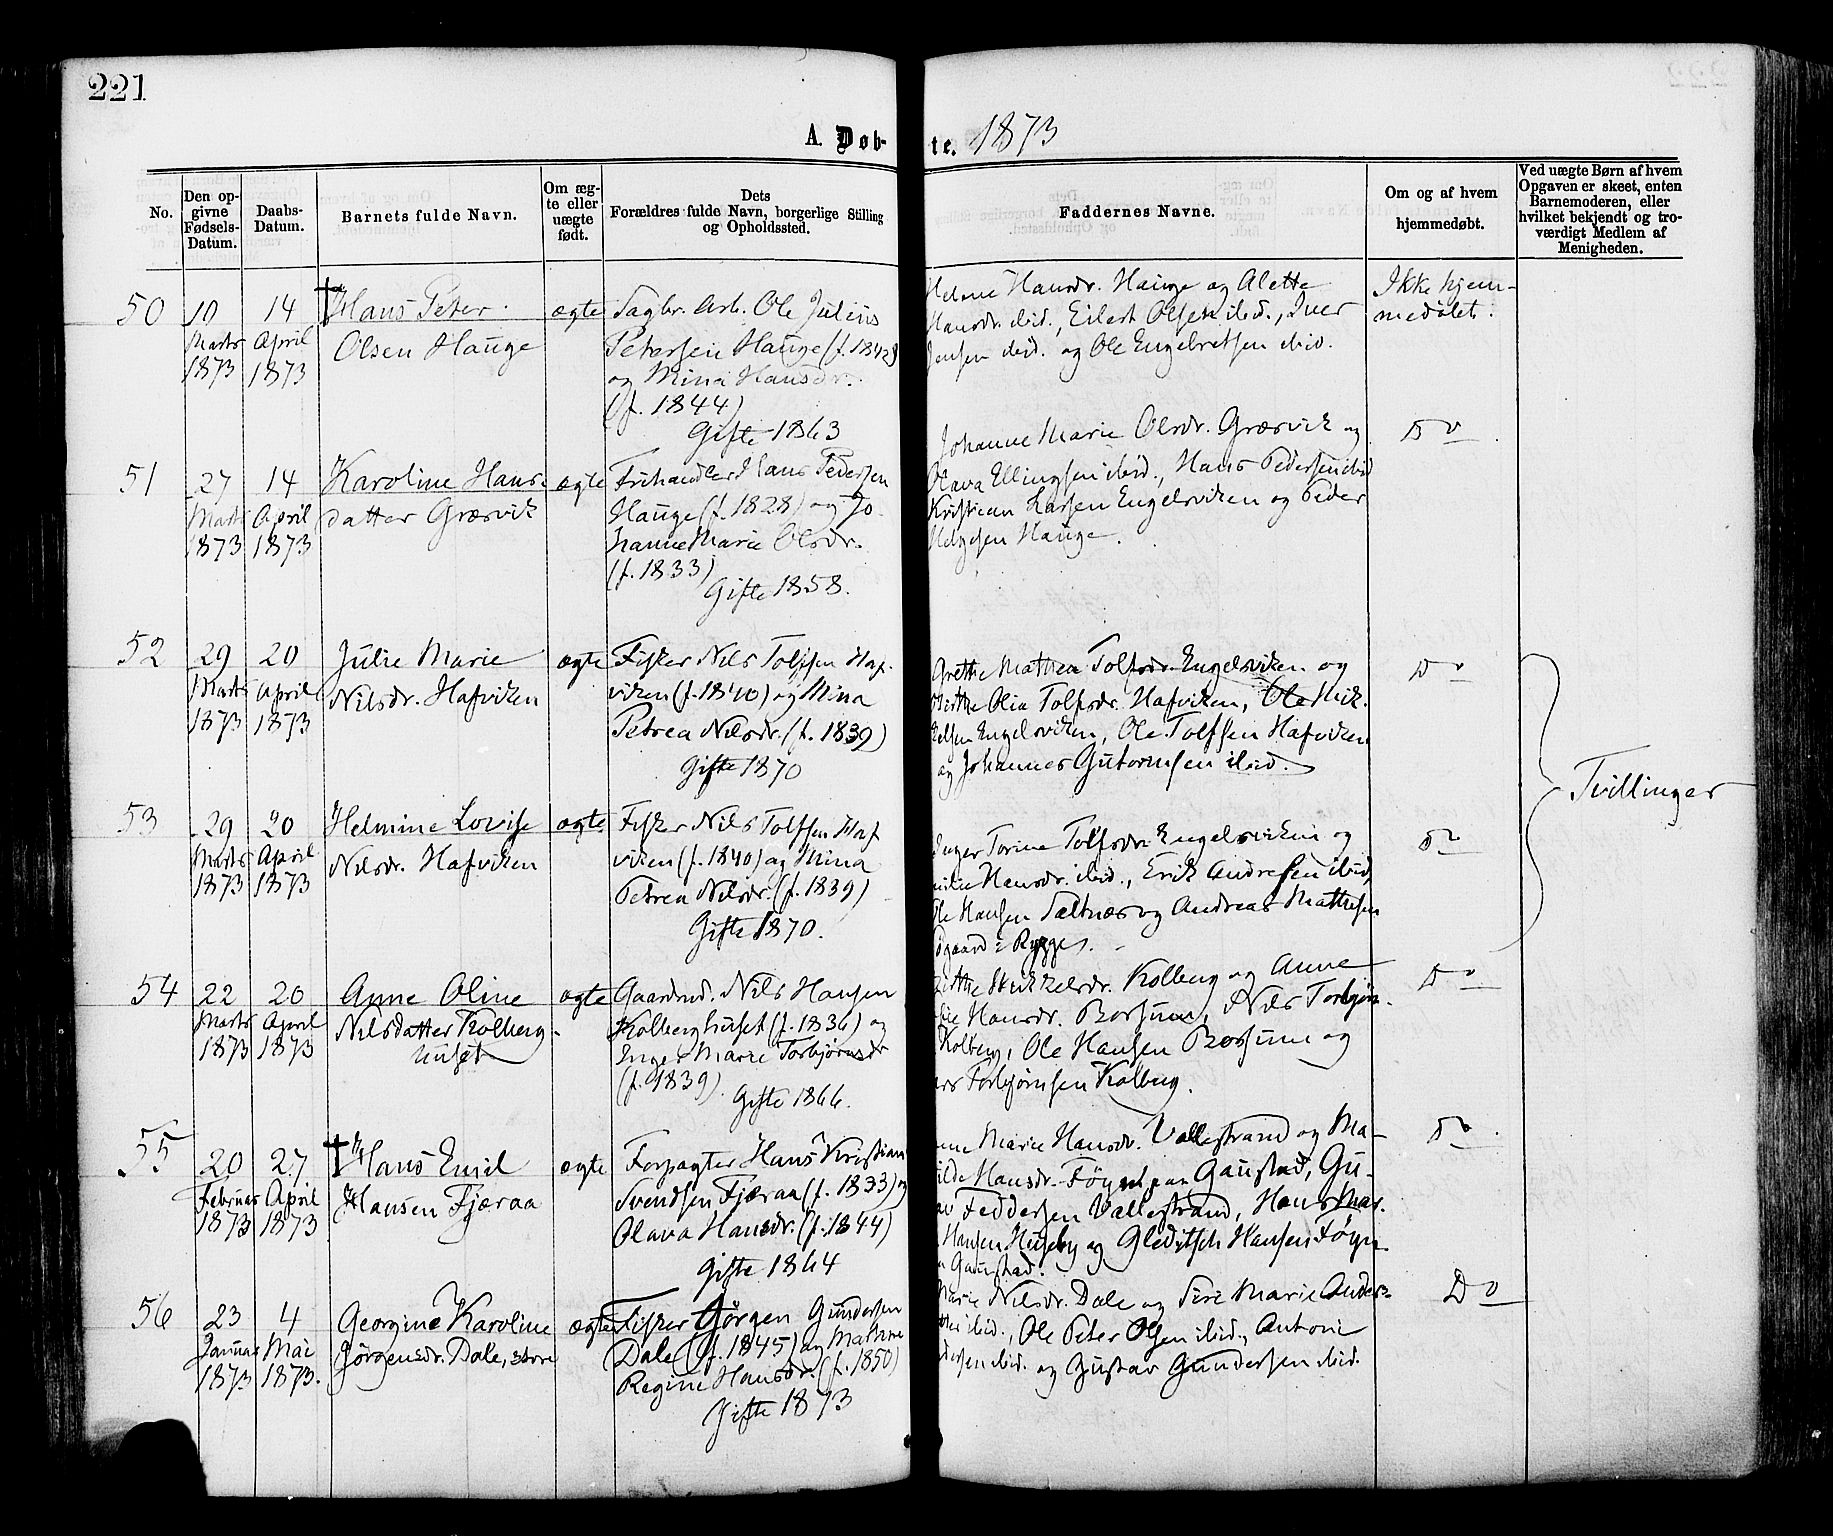 221
A. Døb-
te. 1873
No.
Den op-
givne
Fødsels-
Datum.
Daabs-
Datum.
Barnets fulde Navn.
Om æg-
te eller
uægte
født.
Dets
Forældres fulde Navn, borgerlige Stilling
og Opholdssted.
Faddernes Navne.
Om og af hvem
hjemmedøbt.
Ved uægte Børn af hvem
Opgaven er skeet, enten
Barnemoderen, eller
hvilket bekjendt og tro-
værdigt Medlem af
Menigheden.
50
10
Marts
1873
14
April
1873
Hans Peter
Olsen Hauge
ægte
Sagbr. Arb. Ole Julius
Petersen Hauge (f. 1842)
og Mina Hansdr.
(f. 1844)
Gifte 1863
Helene Hansdr. Hauge og Alette
Hansdr. ibid., Eilert Olsen ibid., Iver
Jensen ibid. og Ole Engelretsen ibid.
Ikke hjem-
medøbt.
51
27
Marts
1873
14
April
1873
Karoline Hans-
datter Græsvik
ægte
Frihandler Hans Pedersen
Hauge (f. 1828) og Jo-
hanne Marie Olsdr.
(f. 1833)
Gifte 1858.
Johanne Marie Olsdr. Græsvik og
Olava Ellingsen ibid., Hans Pedersen ibid
Kristian Larsen Engelsviken og Peder
Helgesen Hauge.
Do
52
29
Marts
1873
20
April
1873
Julie Marie
Nilsdr. Hafviken
ægte
Fisker Nils Tolfsen Haf-
viken (f. 1840) og Mina
Petrea Nilsdr. (f. 1839)
Gifte 1870
Grethe Mathea Tolfsdr. Engelsviken og
Berthe Olia Tolfsdr. Hafviken, Ole Mik-
kelsen Engelsviken, Ole Tolfsen Hafviken
og Johannes Gutormsen ibid.
Do
Tvillinger
53
29
Marts
1873
20
April
1873
Helmine Lovise
Nilsdr. Hafviken
ægte
Fisker Nils Tolfsen Haf
viken (f. 1840) og Mina
Petrea Nilsdr. (f. 1839)
Gifte 1870.
Inger Torine Tolfsdr. Engelsviken og
Hansdr. ibid., Erik Andresen ibid,
Ole Hansen Saltnæs og Andreas Mathisen
i Rygge.
Do
54
22
Marts
1873
20
April
1873
Anne Oline
Nilsdatter Kolberg-
huset
ægte
Gaardmd. Nils Hansen
Kolberghuset (f. 1836) og
Inger Marie Torbjørnsdr
(f. 1839)
Gifte 1866.
Kolberg og Anne
Hansdr. Borsum, Nils Torbjørn-
Kolberg, Ole Hansen Borsum og
Torbjørnsen Kolberg.
Do
55
20
Februar
1873
27
April
1873
Hans Emil
Hansen Fjæraa
ægte
Forpagter Hans Kristian
Svendsen Fjæraa (f. 1833) og
Olava Hansdr. (f. 1844)
Gifte 1864
Marie Hansdr. Vallestrand og Ma-
ilde Hansdr. Føyn paa Gaustad, Gu-
av Feddersen Vallestrand, Hans Mar.
Hansen Huseby og Gleditsch Hansen Føyn
Gaustad.
Do
56
23
Januar
1873
4
Mai
1873.
Georgine Karoline
Jørgensdr. Dale, store
ægte
Fisker Jörgen Gundersen
Dale (f. 1845) og Mathine
Regine Hansdr. (f. 1850)
Gifte 1873
Marie Nilsdr. Dale og Siri Marie Anders-
ibid., Ole Peter Olsen ibid., Anton
ibid. og Gustav Gundersen ibid.
Do